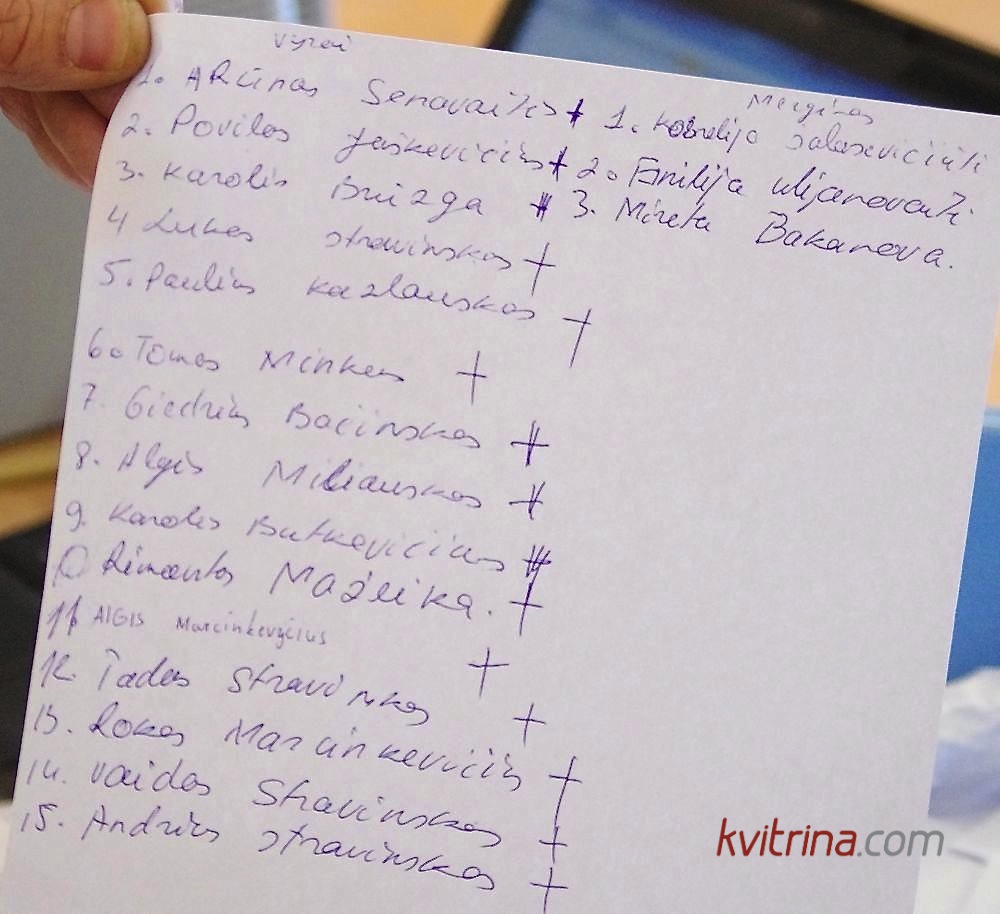 Vyrai
1. ARūnas Senavaitis +
2. Povilas Jaškevičius +
3. Karolis Bruzga #
4 Lukas Stravinskas +
5. Paulius Kazlauskas +
6. Tomas Minkus +
7. Giedrius Bacinskas +
8. Algis Miliauskas +
9. Karolis Butkevicius #
10 Rimantas Mažeika. +
11 AlGIS Marcinkevycius +
12. Tadas Stravinskas +
13. Rokas Marcinkevičius +
14. Vaidas Stravinskas +
15. Andrius Stravinskas +
Merginos
1. Kornelija Salasevičiūtė
2. Emilija Uljanovaitė
3. Mireta Bakanova.
kvitrina.com